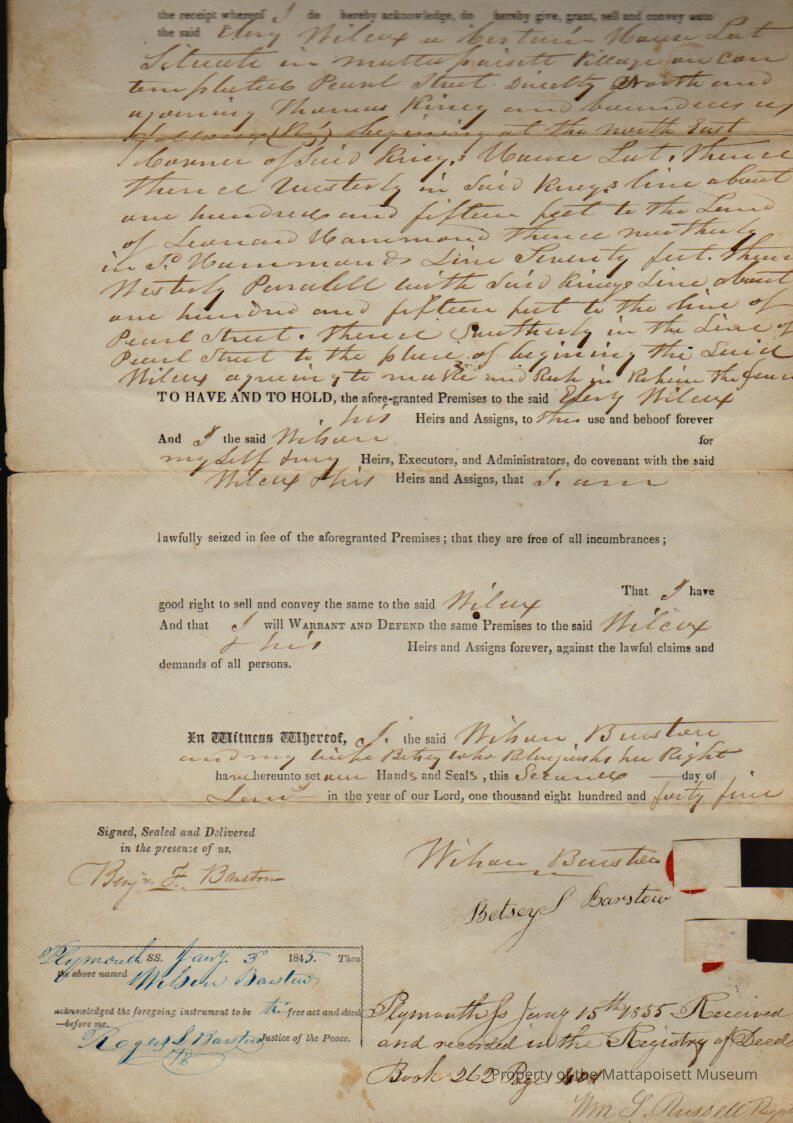 the receipt whereof I do hereby acknowledge, do hereby give, grant, sell and convey unto
the said Elery Wilcox a Certain House Lot
Situate in Mattapoisett Village on Con
templated Pearl Street. Directly North and
ajoining Thomas Kiney and bounded as
follows (Viz) begining at the North East
Corner of Said Kiney,s House Lot, Thence
thence Westerly in Said Kineys line about
one hundred and fifteen feet to the Land
of Leonard Hammond thence northerly
in Sd Hammonds Line Seventy feet. thence
Westerly Paralell with Said Kineys Line about
one hundred and fifteen feet to the line of
Pearl Street. thence Southerly in the Line of
Pearl Street to the place of begining the Said
Wilcox agreeing to make and Keep in the
TO HAVE AND TO HOLD, the afore-granted Premises to the said Elery Wilcox
his Heirs and Assigns, to this use and behoof forever
And I the said Wilson for
my Self & my Heirs, Executors, and Administrators, do covenant with the said
Wilcox & his Heirs and Assigns, that I am
lawfully seized in fee of the aforegranted Premises; that they are free of all incumbrances;
That I have
good right to sell and convey the same to the said Wilcox
And that I will WARRANT AND DEFEND the same Premises to the said Wilcox
& his Heirs and Assigns forever, against the lawful claims and
demands of all persons.
In Witness Whereof, I. the said Wilson Barstow
and my wife Betsey who Relinquishs her Right
have hereunto set our Hands and Seals, this Second day of
Jany in the year of our Lord, one thousand eight hundred and forty five
Signed, Sealed and Delivered
in the presence of us,
Benj. F. Barstow
Wilson Barstow
Betsey S Barstow
Plymouth SS. Jany 3 1845. Then
the above named Wilson Barstow
acknowledged the foregoing instrument to be his free act and deed
—before me,
Roger L Barstow Justice of the Peace.
Plymouth Ss Jany 15th 1855 Received
and recorded in the Registry of Deeds
Book 262 Page
Property of the Mattapoisett Museum
Wm S. Russell Regr